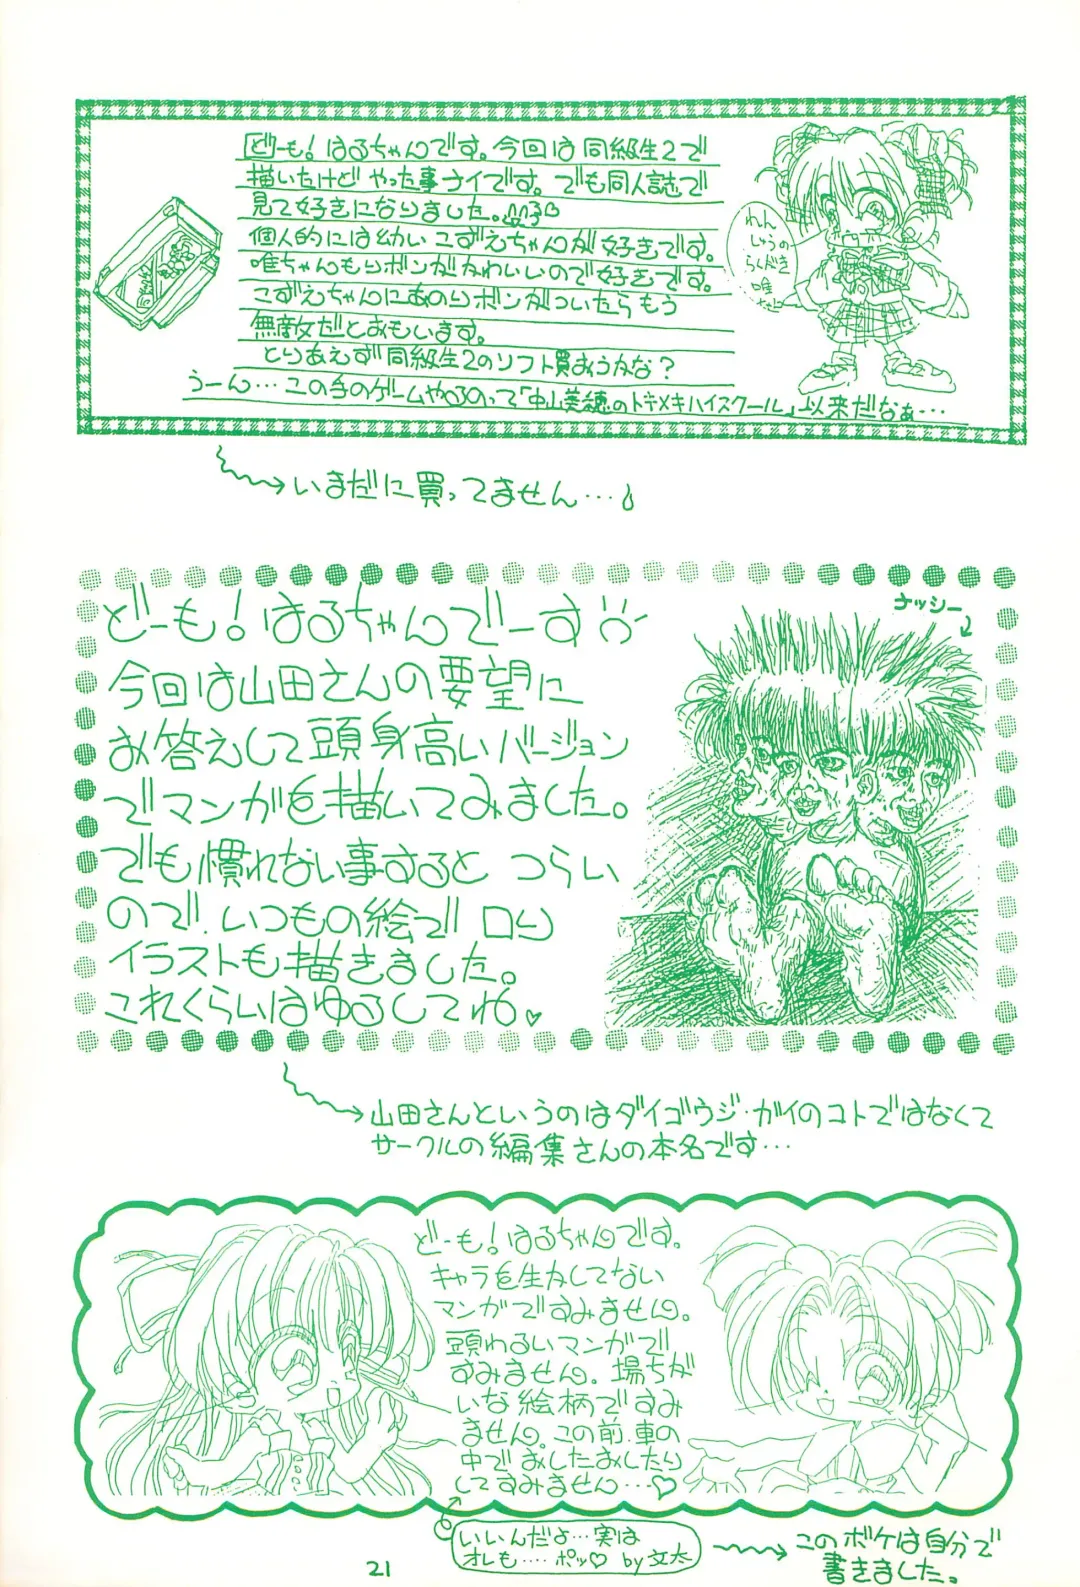 どーも!はるちゃんです。今回は同級生2で
描いたけどやった事ナイです。でも同人誌で
見て好きになりました。
個人的には幼いこずえちゃんが好きです。
唯ちゃんもリボンがかわいいので好きです。
こずえちゃんにあのリボンがついたらもう
無敵だとおもいます。
とりあえず同級生2のソフト買おうかな?
うーん…この手のゲームやるのって「中山美穂のトキメキハイスクール」以来だなぁ…
れん
しゅうの
らくがき
唯
いまだに買ってません…
どーも!はるちゃんでーす
今回は山田さんの要望に
お答えして頭身高いバージョン
でマンガを描いてみました。
でも慣れない事すると つらい
ので、いつもの絵で ロリ
イラストも描きました。
これくらいはゆるしてね♥
ナッシー
山田さんというのはダイゴウジ・ガイのコトではなくて
サークルの編集さんの本名です…
どーも!はるちゃんです。
キャラを生かしてない
マンガですみません。
頭わるいマンガで
すみません。場ちが
いな絵柄ですみ
ません。この前、車の
中でおしたおしたり
してすみません…♡
いいんだよ…実は
オレも…ポッ♡ by 文太
このボケは自分で
書きました。
21